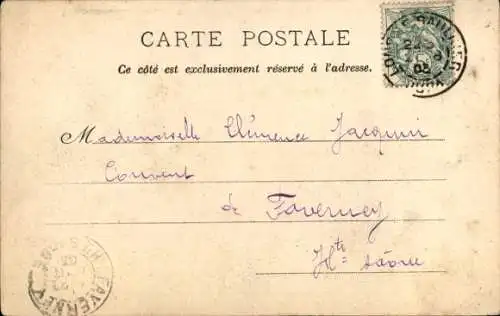 CARTE POSTALE
Ce côté est exclusivement réservé à l'adresse.
Mademoiselle Clémence Jacquin
Couvent
de Faverney
Hte Saône
FAVERNEY
HTE SAONE